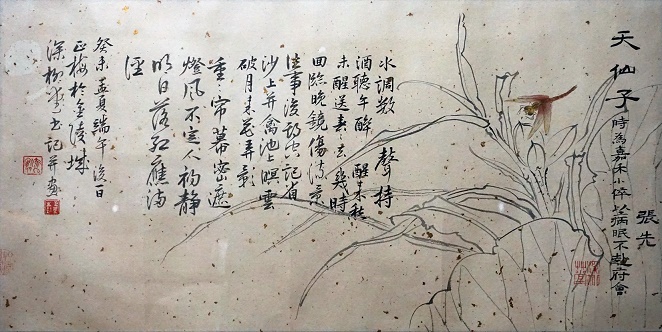 天仙子 時為嘉禾小倅以病眠不赴府會
張先
水調數 聲持
酒聽午醉 醒來愁
未醒送春春去幾時
回臨晚鏡傷流景
往事後期空記省
沙上并禽池上暝雲
破月來花弄影
重重帘幕密遮
燈風不定人初靜
明日落紅應滿
徑
癸未孟夏端午後一日
正梅於金陵城
深柳堂書記并畫